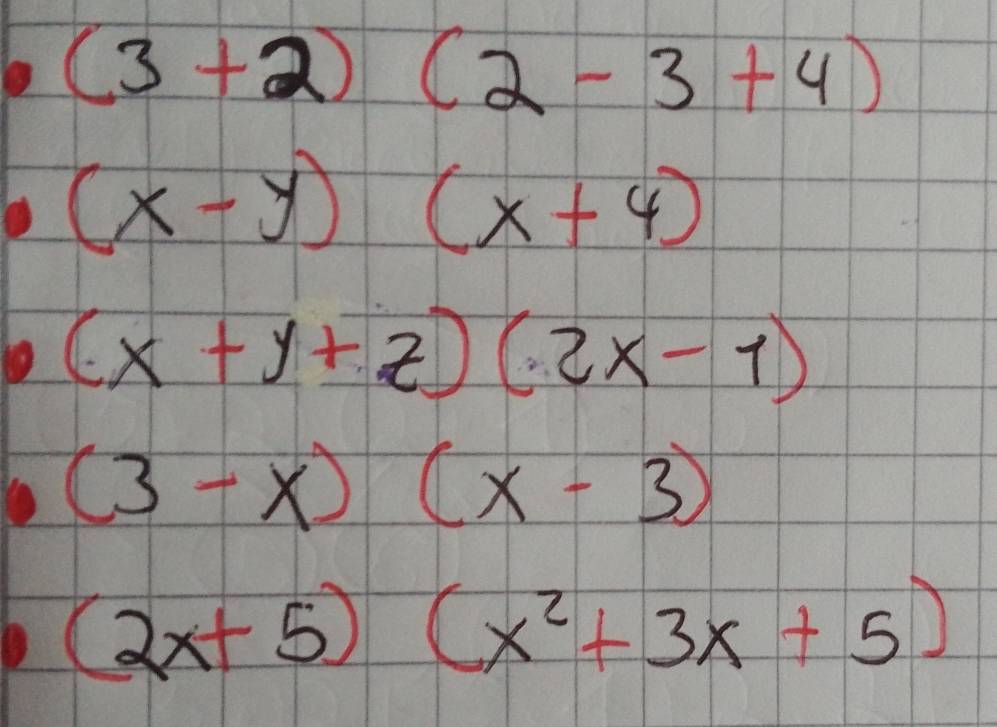 • (3 + 2) (2 - 3 + 4)
• (x - y) (x + 4)
• (x + y + z) (2x - 1)
• (3 - x) (x - 3)
• (2x + 5) (x² + 3x + 5)